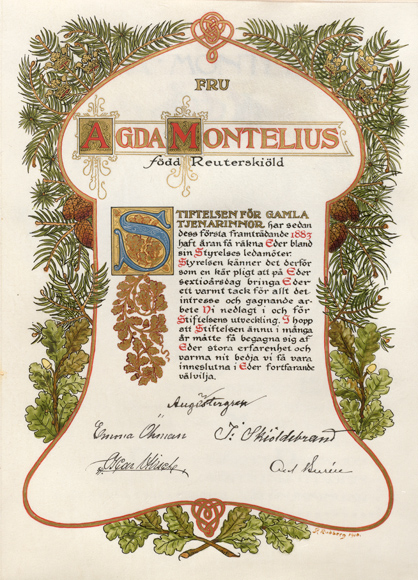 FRU
AGDA MONTELIUS
född Reuterskiöld
STIFTELSEN FÖR GAMLA
TJENARINNOR har sedan
dess första framträdande 1883
haft äran få räkna Eder bland
sin Styrelses ledamöter.
Styrelsen känner det derför
som en kär pligt att på Eder
sextioårsdag bringa Eder
ett varmt tack för allt det
intresse och gagnande ar-
bete Ni nedlagt i och för
Stiftelsens utveckling. I hopp
att Stiftelsen ännu i många
år måtte få begagna sig af
Eder stora erfarenhet och
varma nit bedja vi få vara
inneslutna i Eder fortfarande
välvilja.
Aug Östergren
Emma Öhman
T: Skiöldebrand
Oscar Hirsch